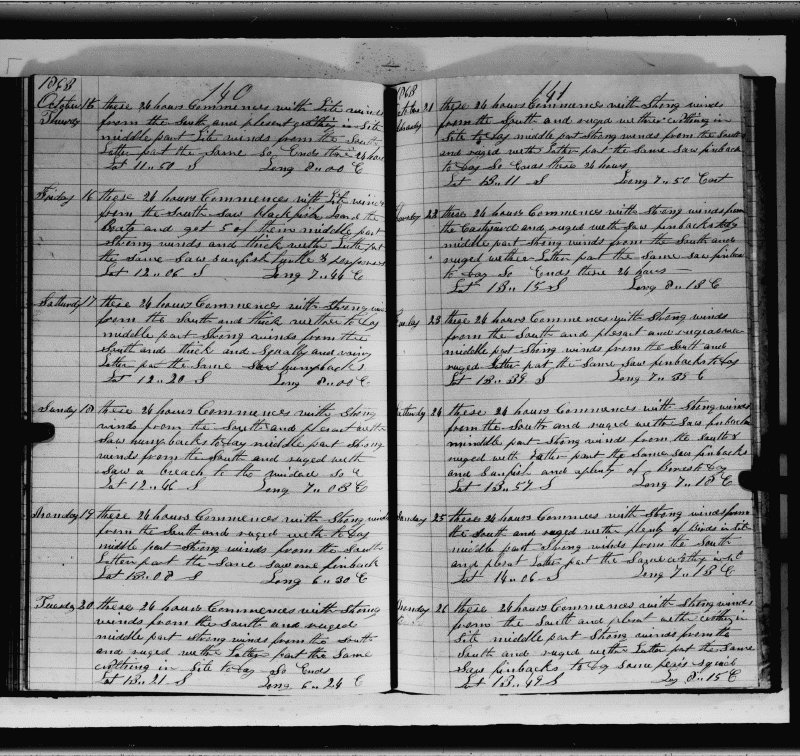 1868
140
October 15 these 24 hours Commences with Lite winds
Thursday from the South and plesent nothing in Site
middle part Lite winds from the South
Latter part the Same So Ends these 24 hours
Lat 11..50 S Long 8..00 E
Friday 16 these 24 hours Commences with Lite winds
from the South Saw blackfish Loard the
Boats and got 5 of them middle part
Strong winds and thick weth Latter part
the Same Saw sunfish turtle &
Lat 12..06 S Long 7..44 E
Satturday 17 these 24 hours Commences with Strong
from the South and thick wether to Day
middle part Strong winds from the
South and thick and Squally and rainy
Latter par the Same Saw humpbacks
Lat 12..20 S Long 8..00 E
Sunday 18 these 24 hours Commences with Strong
winds from the South and plesent weth
Saw humpbacks to Day middle part Strong
winds from the South and ruged weth
Saw a breach to the windad So E
Lat 12..46 S Long 7..08 E
Monday 19 these 24 hours Commences with Strong wind
from the South and ruged weth to Day
middle part Strong winds from the South
Latter part the Same Saw one finback
Lat 13..08 S Long 6..30 E
Tuesday 20 these 24 hours Commences with Strong
winds from the South and ruged
middle part strong winds from the South
and ruged weth Latter part the Same
nothing in Site to Day So Ends
Lat 13..21 S Long 6..24 E
1868
141
21 these 24 hours Commences with Strong winds
from the South and ruged wethe nothing in
Site to Day middle part strong winds from the South
and ruged weth Latter part the Same Saw finback
to Day So Ends these 24 hours
Lat 13..11 S Loong 7..50 East
22 these 24 hours Commences with Strong winds from
the Eastward and ruged weth Saw finbacks to Day
middle part Strong winds from the South and
ruged wether Latter part the Same Saw finbac
to Day So Ends these 24 hours
Lat 13..15 S Long 8..18 E
23 these 24 hours Commences with Strong winds
from the South and plesart and
middle part Strong winds from the South and
ruged Latter part the Same Saw finbacks to Day
Lat 13..39 S Long 7..38 E
24 these 24 hours Commences with Strong winds
from the South and ruged wethe Saw finbacks
middle part Strong winds from the South &
ruged weth Latter part the Same Saw finbacks
and Sunfish and aplenty of to Day
Lat 13..57 S Long 7..18 E
Sunday 25 these 24 hours Commences with Strong winds from
the South and ruged weth plenty of Birds in Site
middle part Strong winds from the South
and plesent Latter part the Same nothing in
Lat 14..06 S Long 7..13 E
Monday 26 these 24 hours Commences with Strong winds
from the South and plesent weth nothing in
Site middle part Strong winds from the
South and ruged weth Latter part the Same
Saw finbacks to Day Same
Lat 13..49 S Log 8..15 E